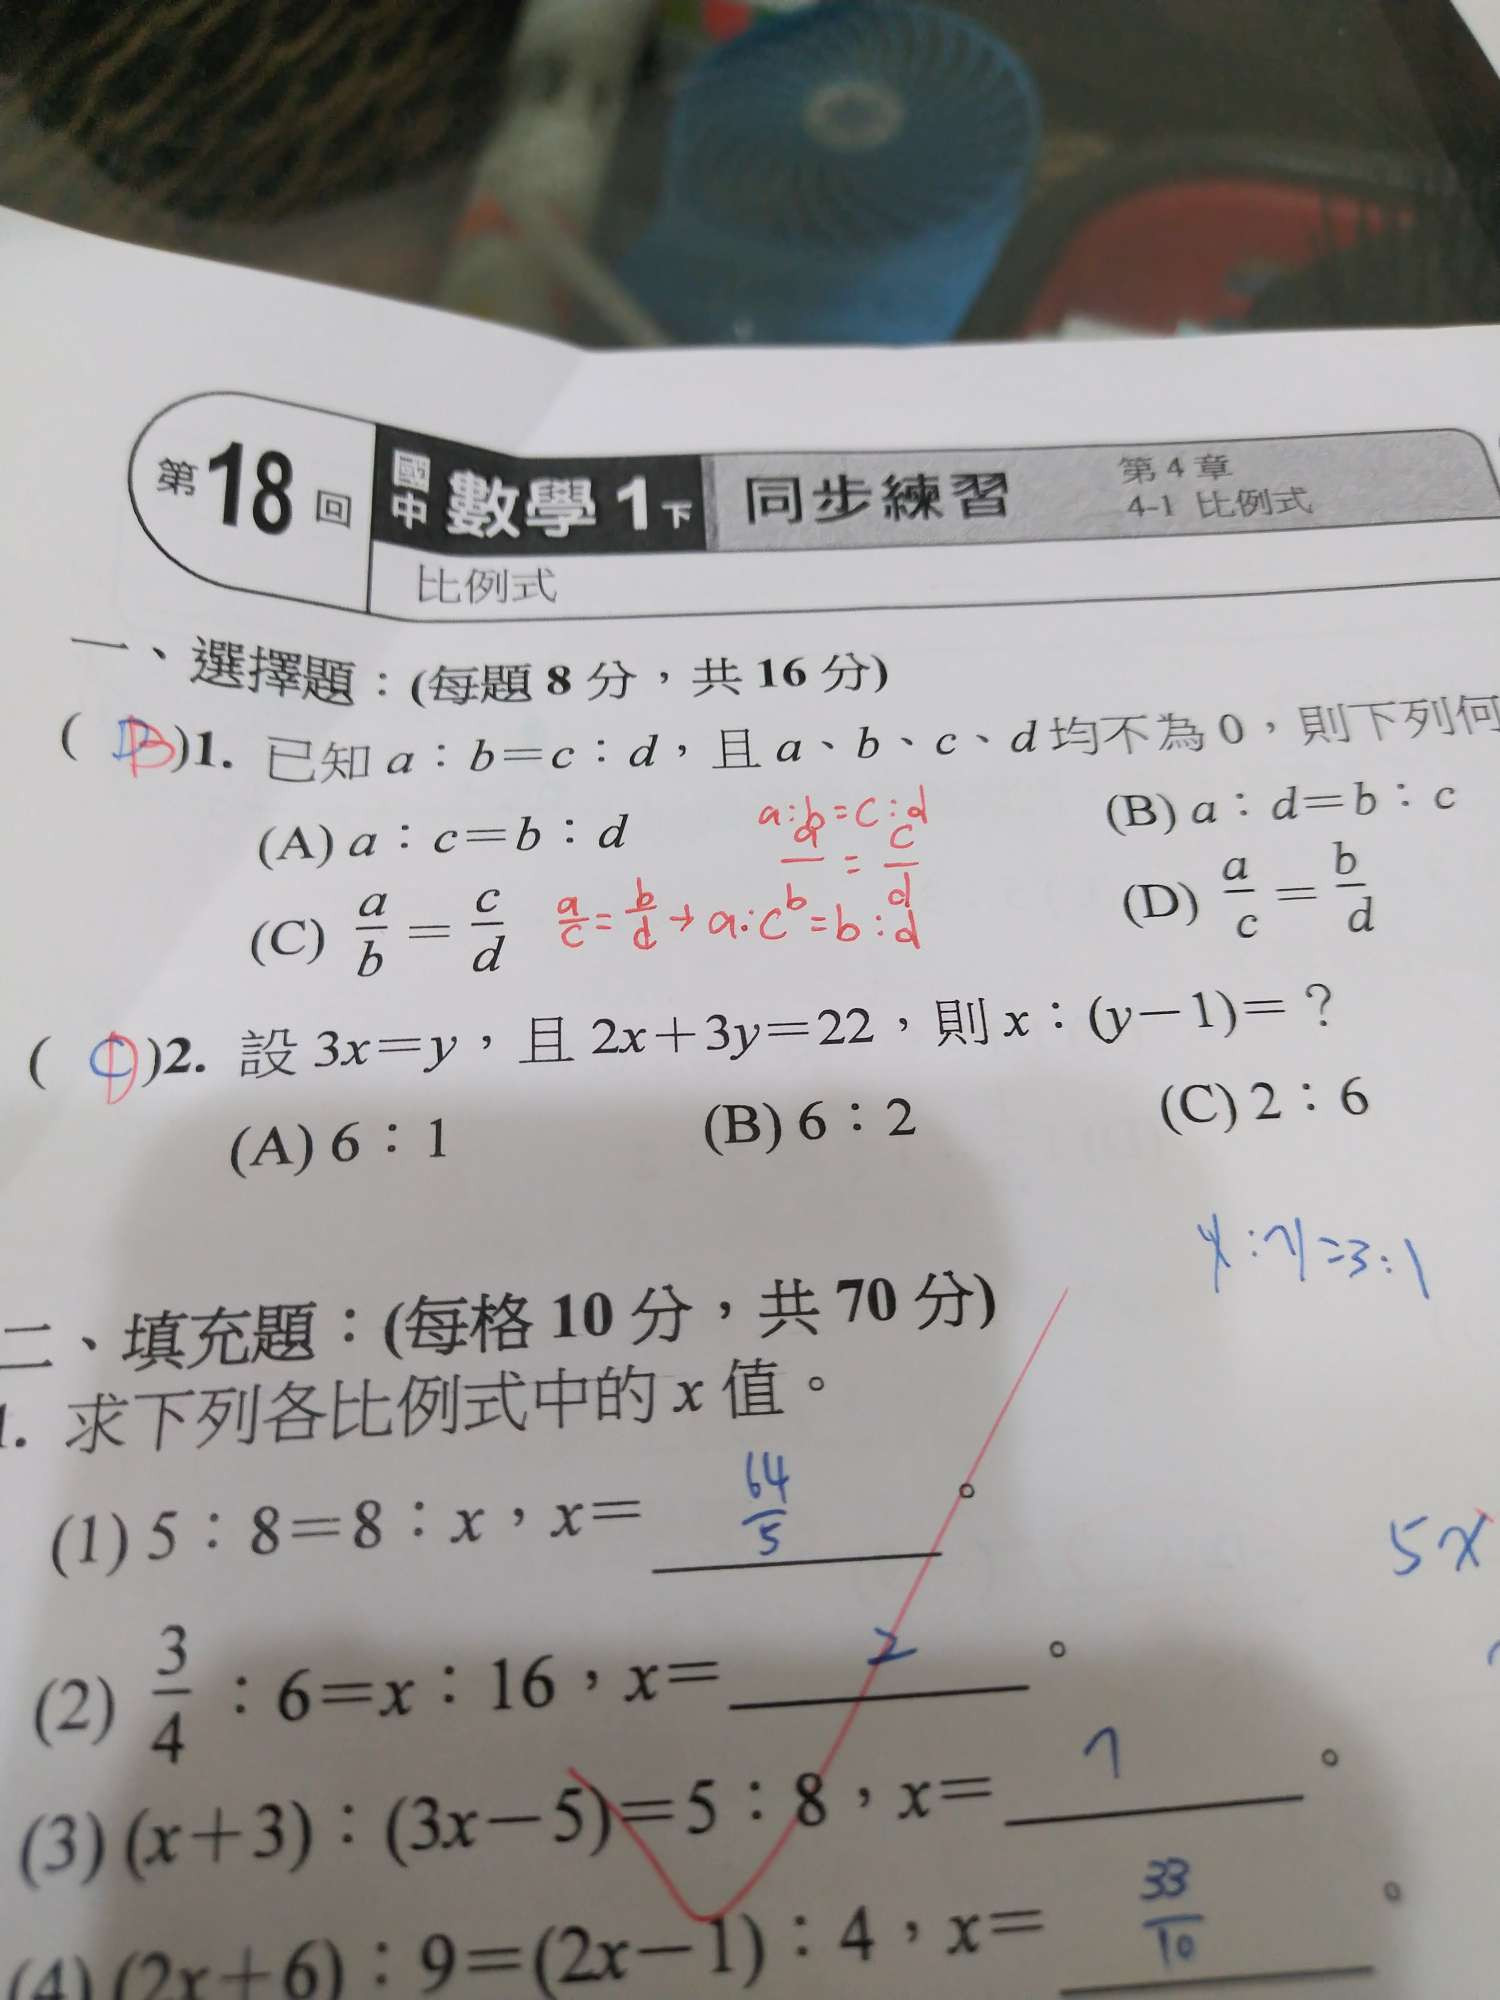 第18回 國中 數學1下 同步練習 第4章
4-1 比例式
比例式
一、選擇題：(每題8分，共16分)
( B )1. 已知a：b=c：d，且a、b、c、d均不為0，則下列何
(A) a：c=b：d
a:b=c:d
(B) a：d=b：c
a/b = c/d
(C) a/b = c/d
a/c = b/d → a:c=b:d
(D) a/c = b/d
( D )2. 設3x=y，且2x+3y=22，則x：(y−1)=？
(A) 6：1 (B) 6：2 (C) 2：6
=3:1
二、填充題：(每格10分，共70分)
1. 求下列各比例式中的x值。
(1) 5：8=8：x，x= 64/5 。
5x
(2) 3/4：6=x：16，x= 2 。
(3) (x+3)：(3x−5)=5：8，x= 7 。
(4) (2x+6)：9=(2x−1)：4，x= 33/10 。